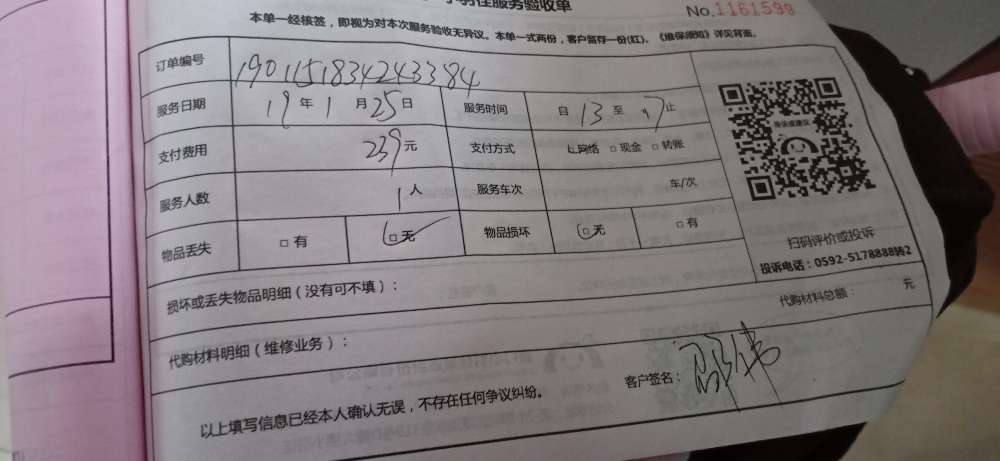 易住服务验收单
No.1161599
本单一经核签，即视为对本次服务验收无异议。本单一式两份，客户留存一份(红)。《维保须知》详见背面。
订单编号 1901151834243384
服务日期 19年1月25日 服务时间 自13至17止
支付费用 239元 支付方式 网络 □现金 □转账
服务人数 1人 服务车次 车/次
物品丢失 □有 □无 物品损坏 □无 □有
投诉或建议
扫码评价或投诉
投诉电话：0592-5178888转2
损坏或丢失物品明细（没有可不填）：
代购材料总额： 元
代购材料明细（维修业务）：
以上填写信息已经本人确认无误，不存在任何争议纠纷。
客户签名：